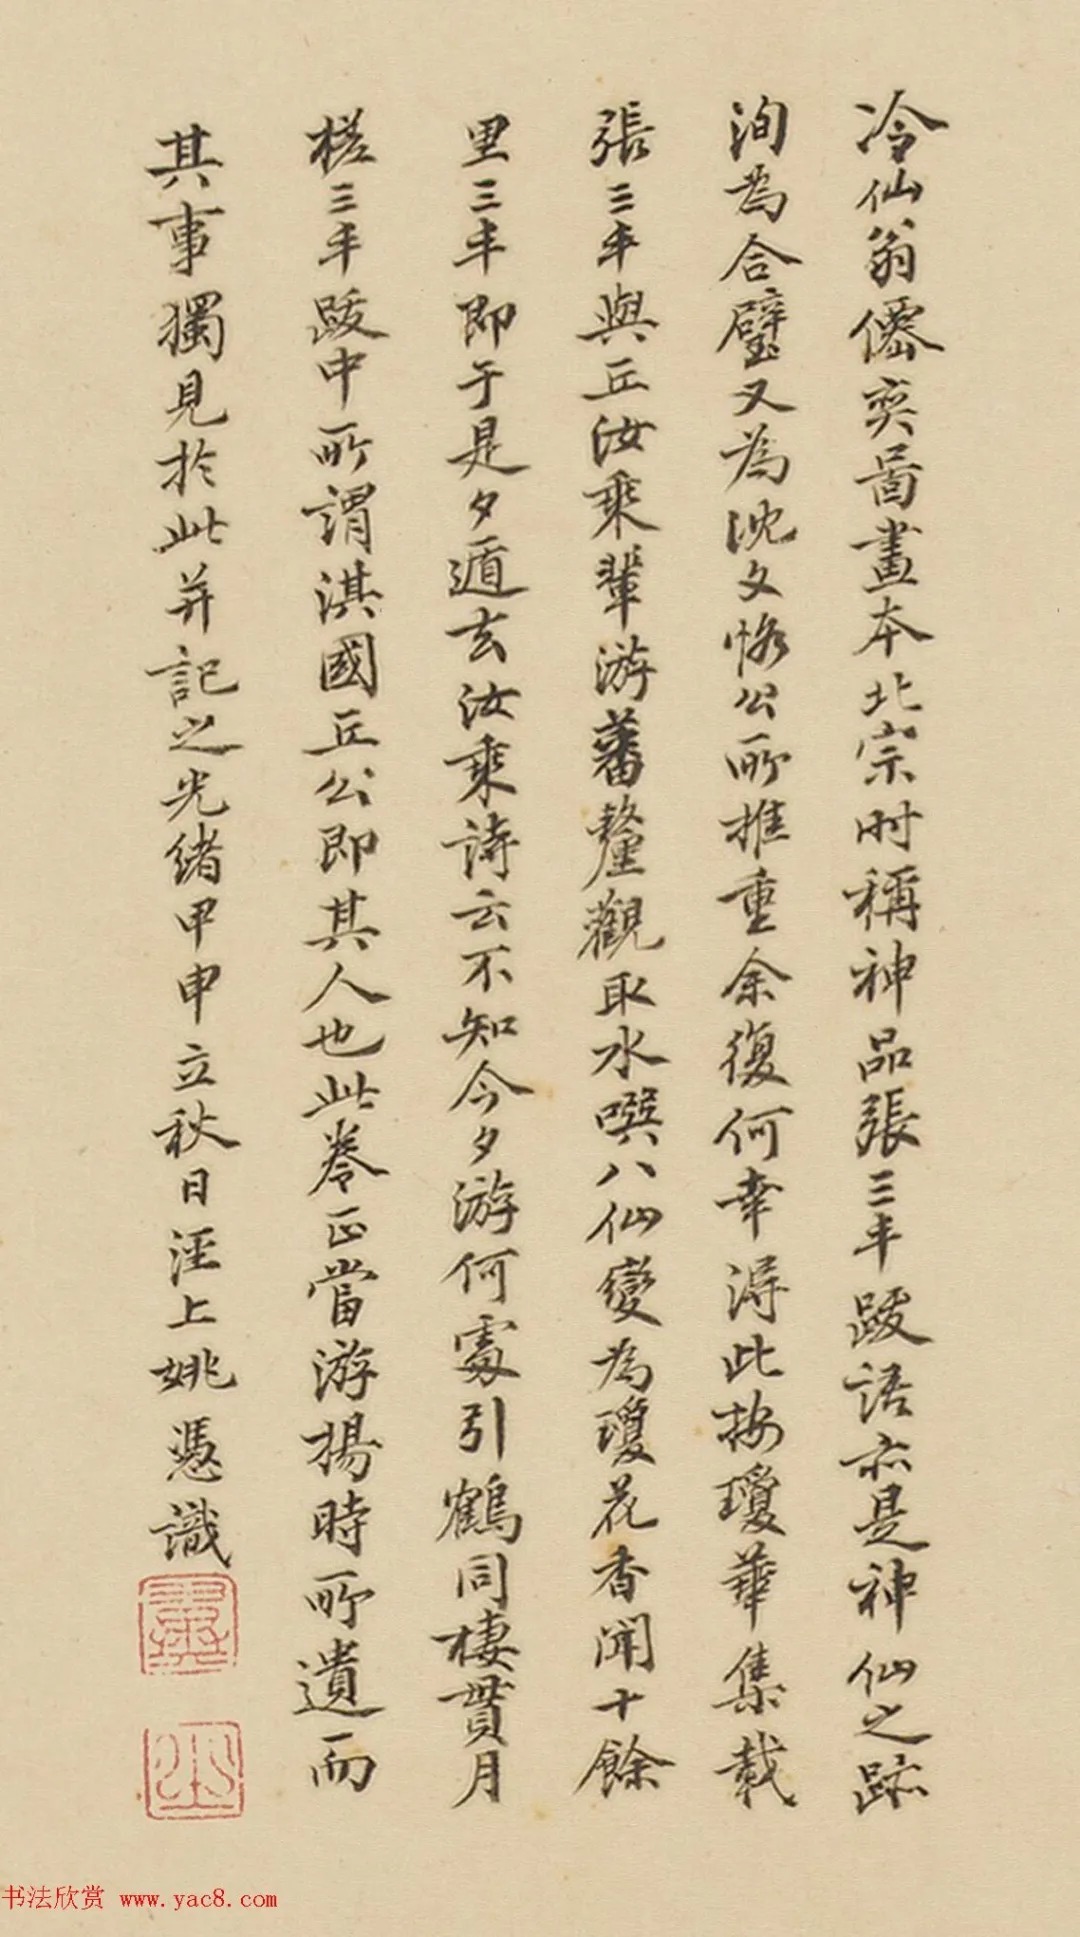 冷仙翁僊奕啚畫本北宗时稱神品張三丰跋語亦是神仙之跡
洵為合璧又為沈文恪公所推重余復何幸淂此按瓊華集載
張三丰與丘汝乘輩游蕃釐觀取水噀八仙變為瓊花香聞十餘
里三丰即于是夕遁去汝乘詩云不知今夕游何處引鶴同棲貫月
槎三丰跋中所謂淇國丘公即其人也此卷正當游揚時所遺而
其事獨見於此并記之光緒甲申立秋日涇上姚憑識
书法欣赏 www.yac8.com